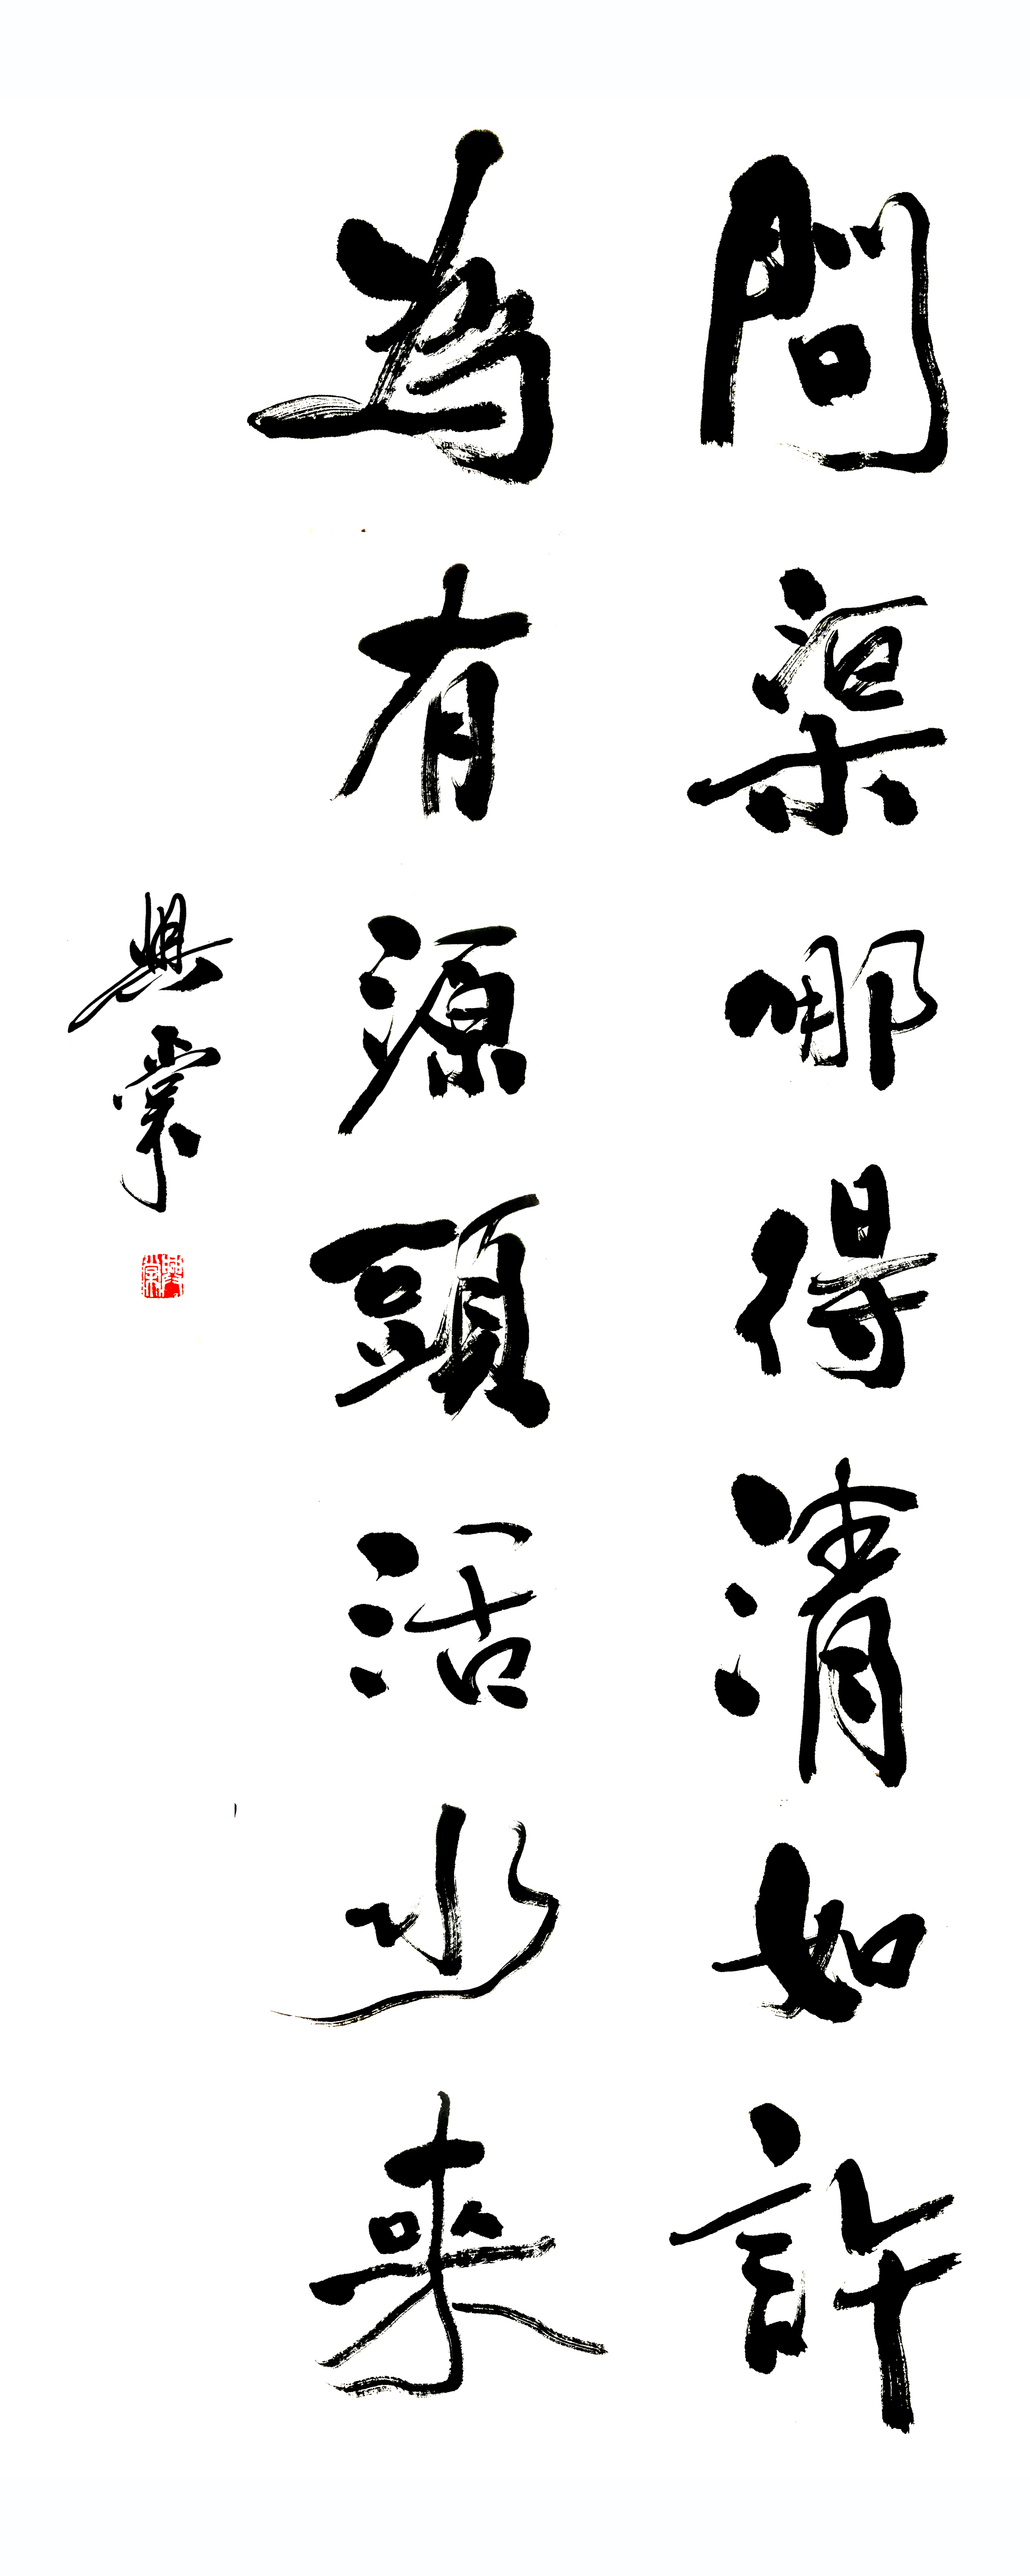 問渠哪得清如許
為有源頭活水来
興棠